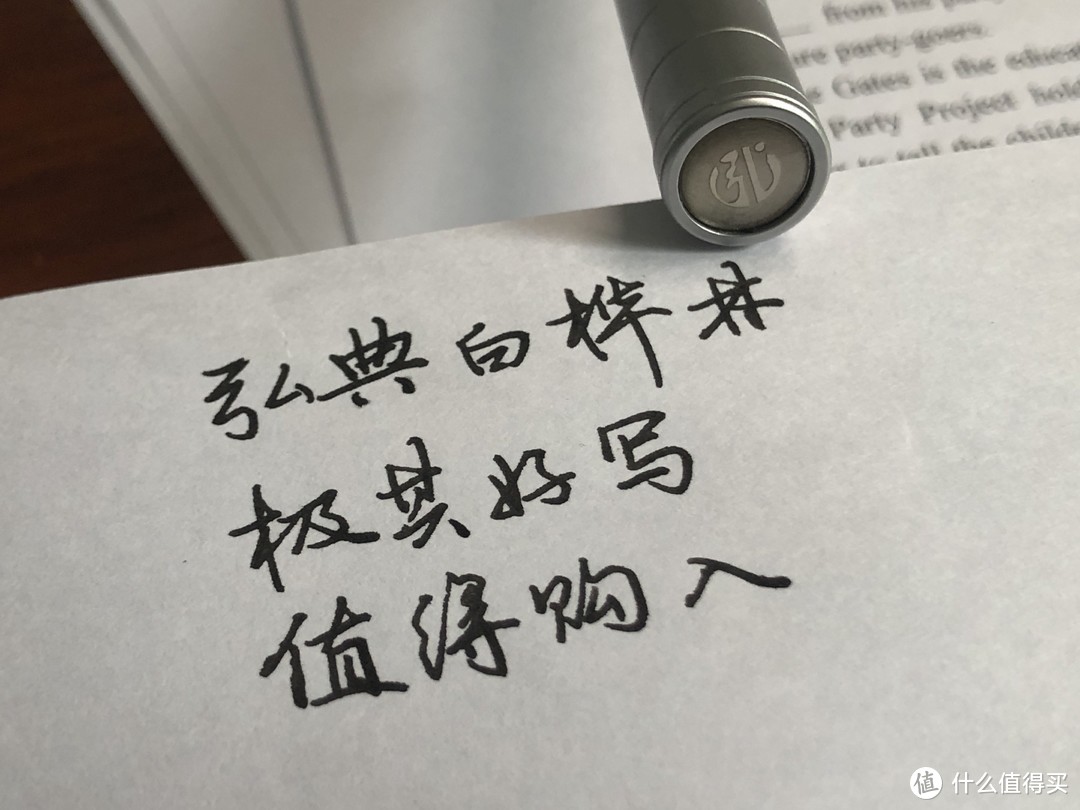 from his party
are party-goers.
Gates is the educa
Party Project hold
to tell the childre
弘典白桦林
极其好写
值得购入
值 什么值得买